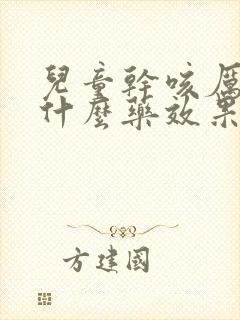 兒童幹咳厲
什麼藥效果
方建國